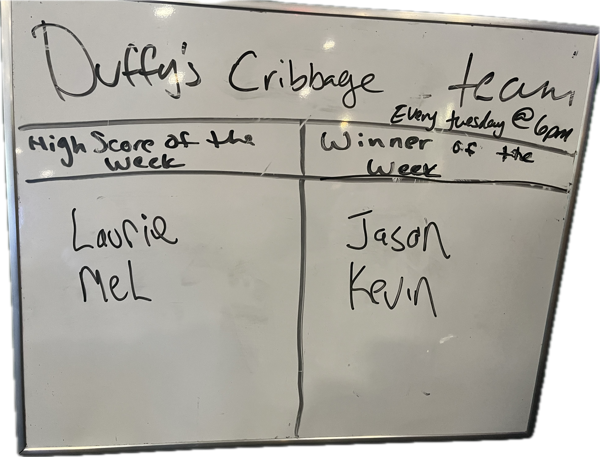 Duffy's Cribbage team
Every tuesday @ 6pm
High Score of the
Week
Winner of the
Week
Laurie
MeL
Jason
Kevin